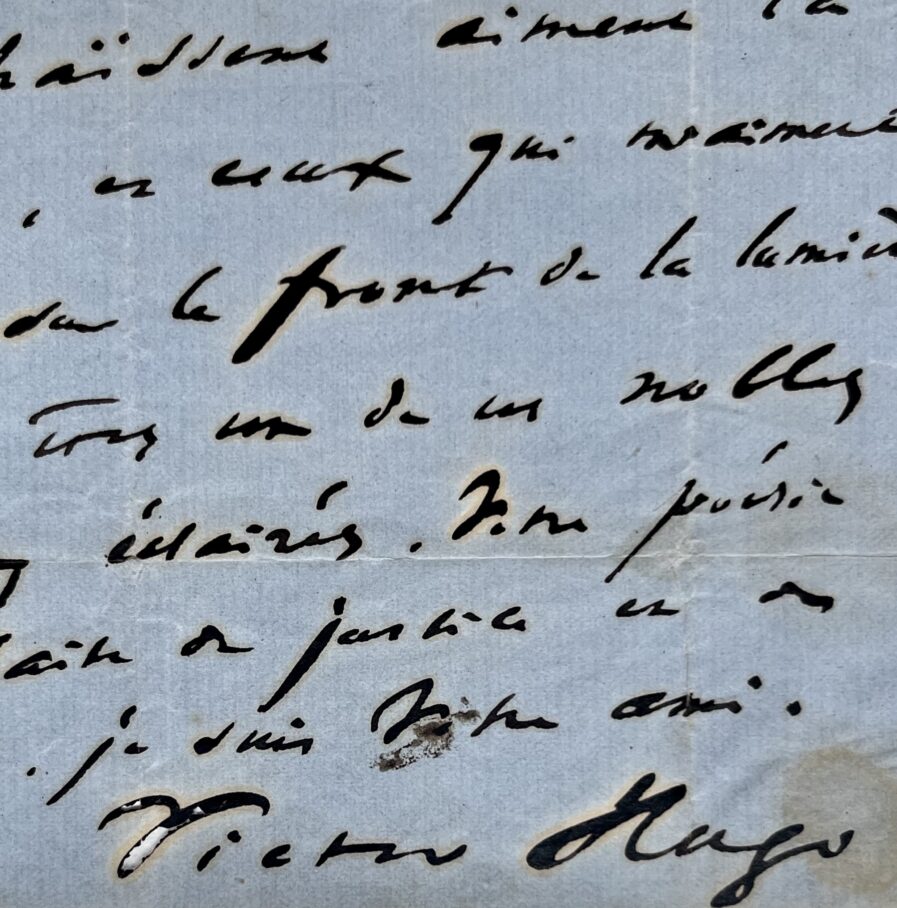 haïssent aiment la
, et ceux qui m'aiment
sur le front de la lumière
êtes un de ces nobles
éclairés. Votre poésie
faite de justice et de
. je suis Votre ami.
Victor Hugo